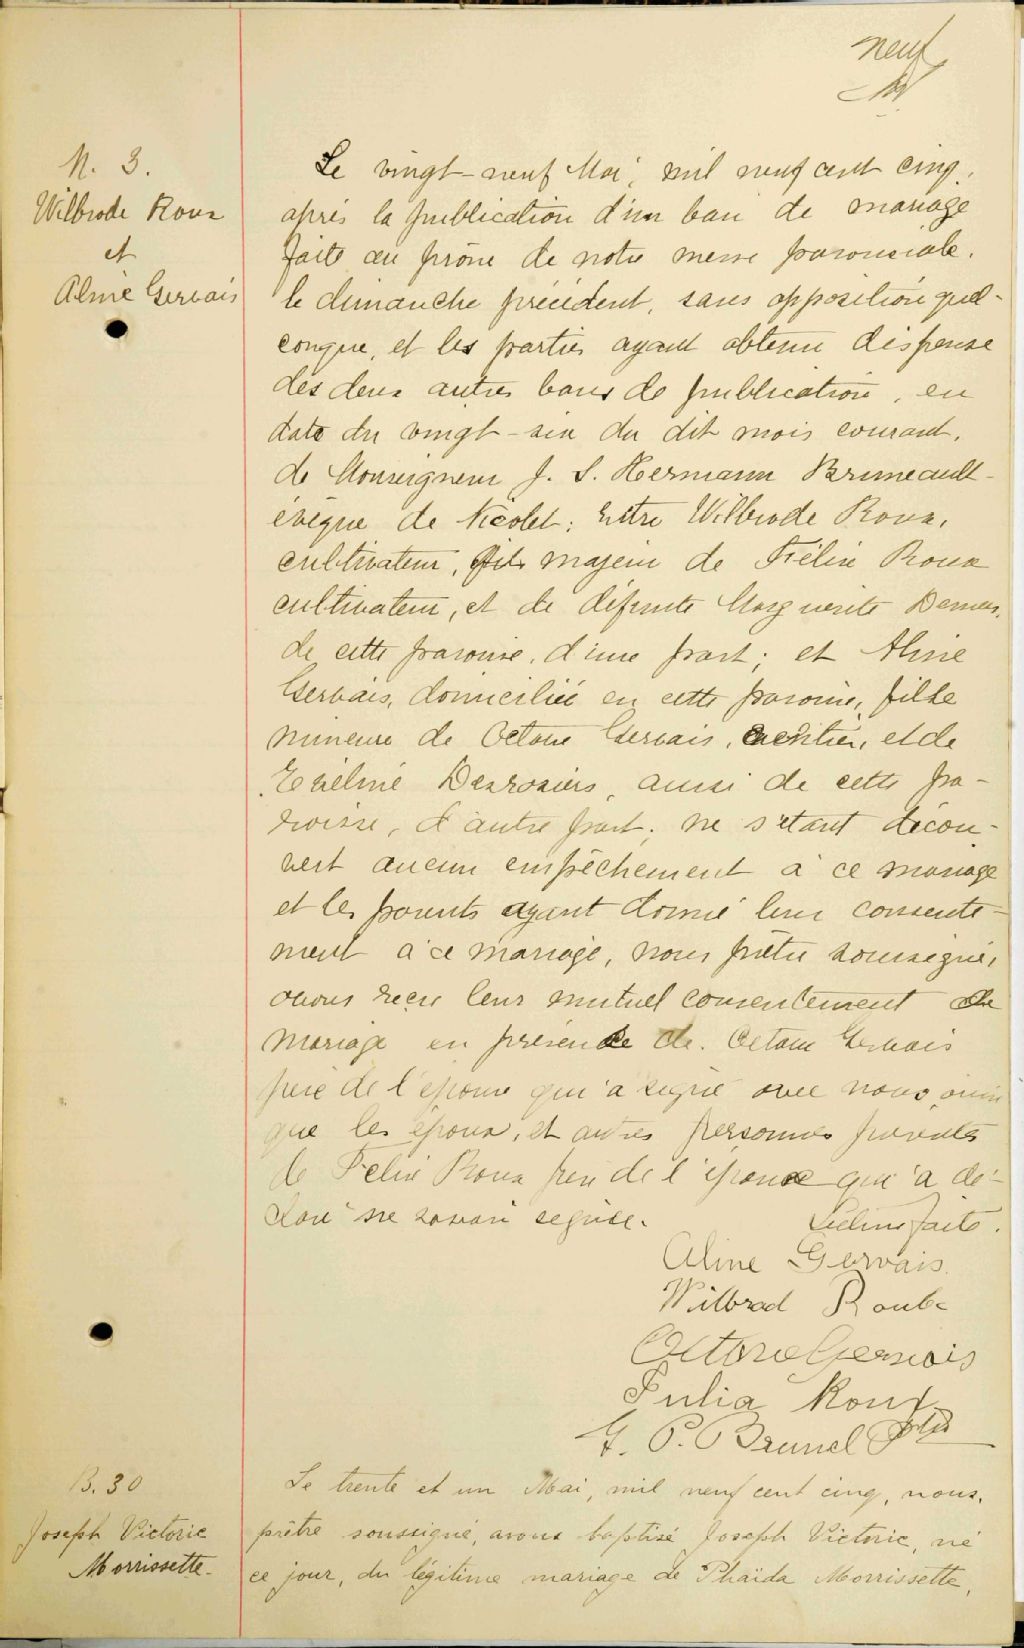 neuf
M. 3.
Wilbrode Roux
et
Aline Gervais
Le vingt-neuf Mai, mil neuf cent cinq,
après la publication d'un ban de mariage
faite au prône de notre messe paroissiale,
le dimanche précédent, sans opposition quel-
conque, et les parties ayant obtenu dispense
des deux autres bans de publication, en
date du vingt-six du dit mois courant,
de Monseigneur J. S. Hermann Bruneault
évêque de Nicolet; Entre Wilbrode Roux,
cultivateur, fils majeur de Félix Roux
cultivateur, et de défunte Marguerite Demers,
de cette paroisse, d'une part; et Aline
Gervais, domiciliée en cette paroisse, fille
mineure de Octave Gervais, rentier, et de
Eveline Desrosiers, aussi de cette pa-
roisse, d'autre part; ne s'étant décou-
vert aucun empêchement à ce mariage
et les parents ayant donné leur consente-
ment à ce mariage, nous prêtre soussigné,
avons reçu leur mutuel consentement de
mariage en présence de Octave Gervais
père de l'épouse qui a signé avec nous ainsi
que les époux, et autres personnes présentes
de Félix Roux père de l'époux qui a dé-
claré ne savoir signer. Lecture faite.
Aline Gervais
Wilbrod Roux
Octave Gervais
Julia Roux
G. P. Brunel Ptre
B. 30
Joseph Victoric
Morrissette
Le trente et un Mai, mil neuf cent cinq, nous,
prêtre soussigné, avons baptisé Joseph Victoric, né
ce jour, du légitime mariage de Phaïda Morrissette,